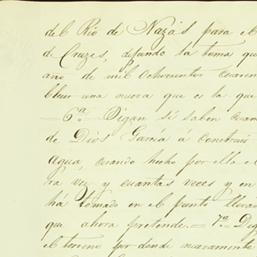 del Rio de Nazas para el
de Cruzes, dejando la toma que
año de mil ochocientos cuaren
una nueva que es la que
— 6ª Digan si saben cuan
de Dios Garcia á construir
Agua, cuando hecho por ella e
ra vez y cuantas veces y en
há tomado en el punto llama
que ahora pretende. — 7ª Dig
el terreno por donde nuevamente